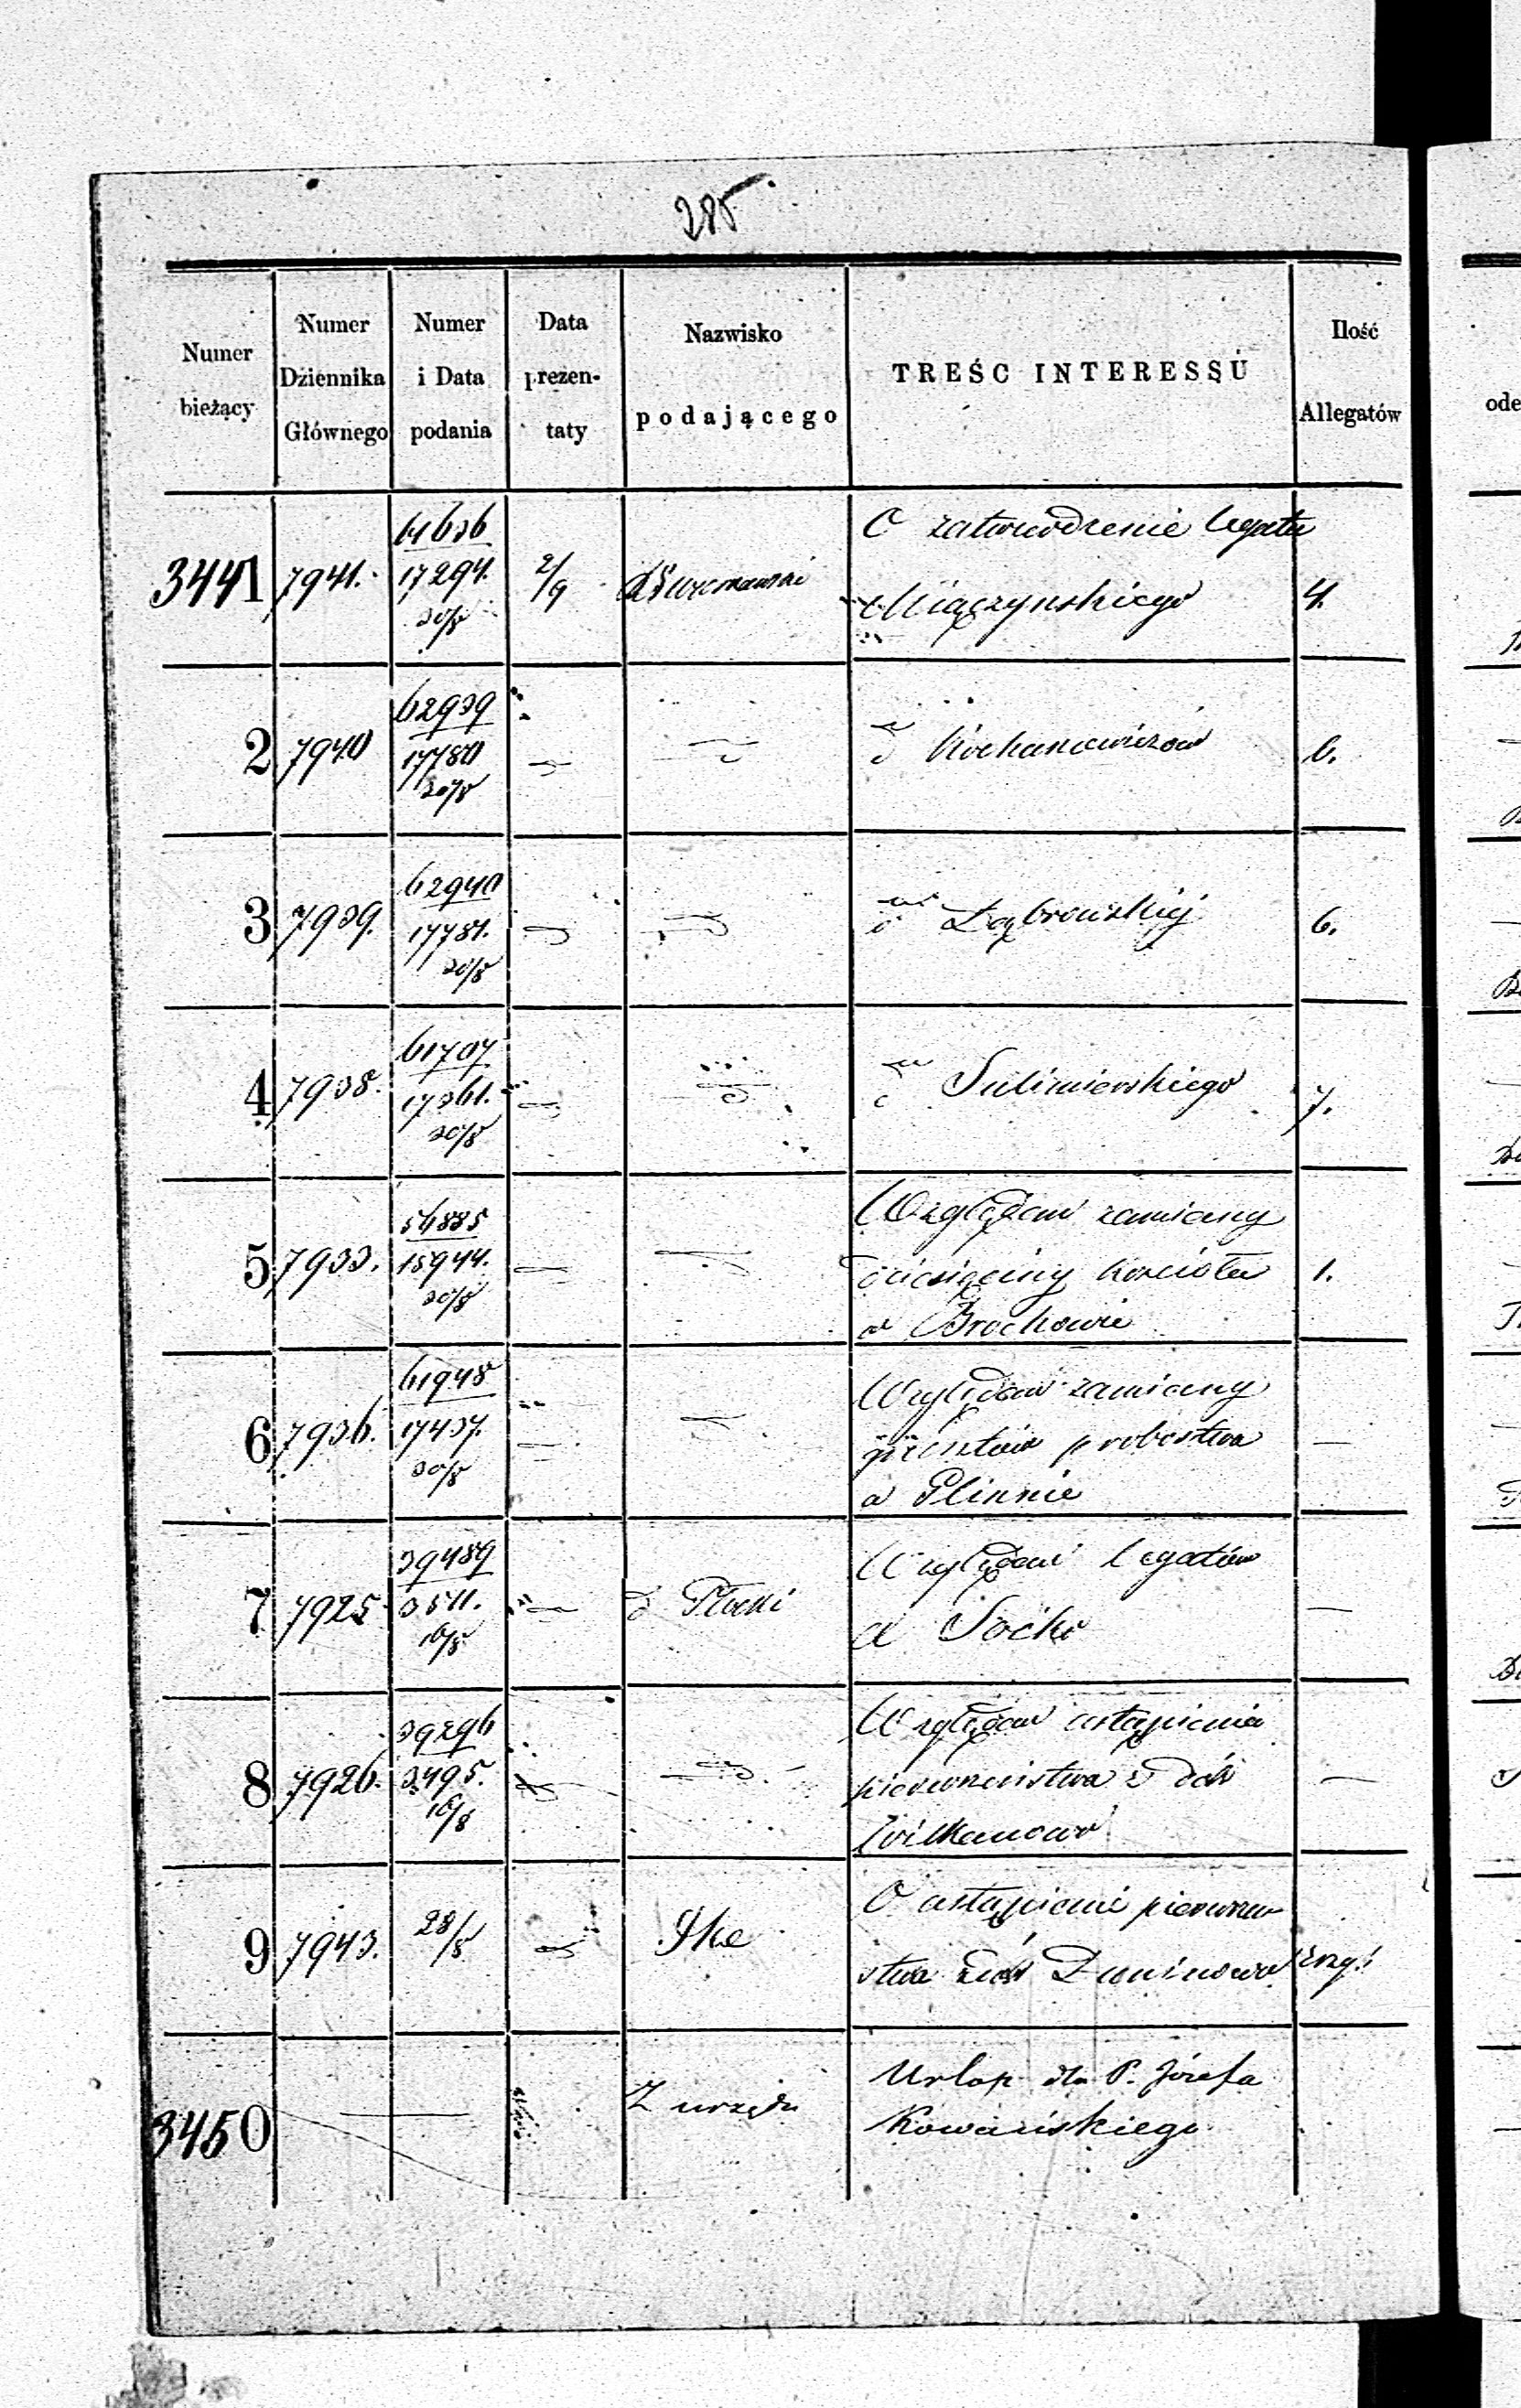 285
Numer bieżący
Numer Dziennika Głównego
Numer i Data podania
Data prezen- taty
Nazwisko podającego
TREŚC INTERESSU
Ilość Allegatów
ode
3441 7941. 61636 17294. 30/8 2/9 O zatwierdzenie legatu
Miączynskiego 4.
2 7940 62939 17780 30/8 — — d Kochanowiczów 6.
3 7939. 62940 17781. 30/8 — — d Dąbrowskiej 6.
4 7938. 61707 17361. 30/8 — — d Sulimierskiego 7.
5 7933. 56885 15944. 30/8 — — Względem zamiany
dziesięciny kościoła 1.
w Brochowie
6 7936. 61948 17437. 30/8 — — Względem zamiany
gruntów probostwa —
w Plinnie
7 7925 39489 3511. 16/8 — d Płocki Względem legatów
w Socho —
8 7926. 39296 3495. 16/8 — — Względem ustąpienia
pierwszeństwa z dóbr —
9 7943. 28/8 — O ustąpienie pierwszeń
stwa dóbr Duninowa
3450 — Z urzędu Urlop dla P. Józefa
Kowańskiego